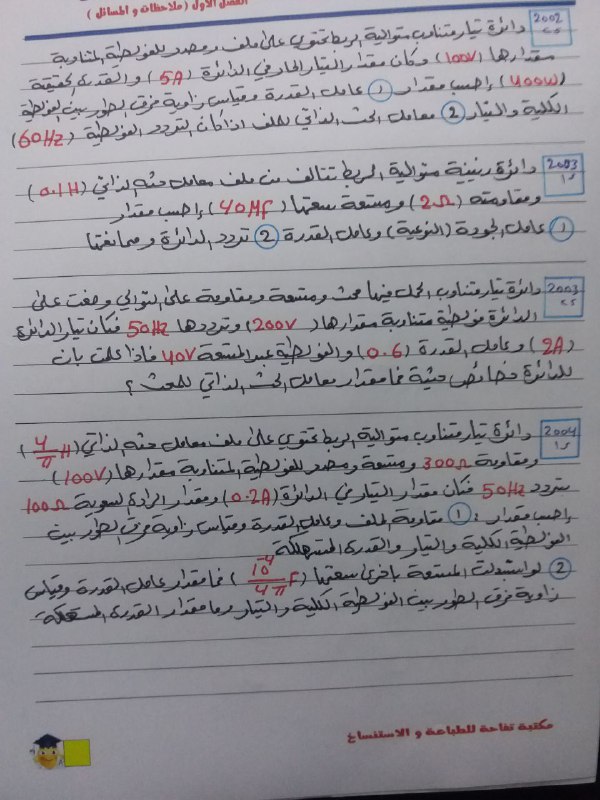 الفصل الأول ( ملاحظات و المسائل )
2002 د2
دائرة تيار متناوب متوالية الربط تحتوي على ملف ومصدر للفولطية المتناوبة
مقدارها (100V) وكان مقدار التيار المار في الدائرة (5A) والقدرة الحقيقية
(400W) احسب مقدار ① عامل القدرة وقياس زاوية فرق الطور بين الفولطية
الكلية والتيار ② معامل الحث الذاتي للملف اذا كان التردد الفولطية (60Hz)
2003 د1
دائرة رنينية متوالية الربط تتالف من ملف معامل حثه الذاتي (0.1H)
ومقاومته (2Ω) ومتسعة سعتها (40Mf) احسب مقدار
① عامل الجودة (النوعية) وعامل القدرة ② تردد الدائرة وممانعتها
2003 د2
دائرة تيار متناوب الحمل فيها محث ومتسعة ومقاومة على التوالي وضعت على
الدائرة فولطية متناوبة مقدارها (200V) وترددها 50Hz فكان تيار الدائرة
(2A) وعامل القدرة (0.6) والفولطية عبر المتسعة 40V فاذا علمت بان
للدائرة خصائص حثية فما مقدار معامل الحث الذاتي للمحث ؟
2004 د1
دائرة تيار متناوب متوالية الربط تحتوي على ملف معامل حثه الذاتي (4/π H)
ومقاومة 300Ω ومتسعة ومصدر للفولطية المتناوبة مقدارها (100V)
بتردد 50Hz فكان مقدار التيار في الدائرة (0.2A) ومقدار الرادة السعوية 100Ω
احسب مقدار : ① مقاومة الملف وعامل القدرة وقياس زاوية فرق الطور بين
الفولطية الكلية والتيار والقدرة المستهلكة
② لو استبدلت المتسعة باخرى سعتها (10⁻⁴/4π F) فما مقدار عامل القدرة وقياس
زاوية فرق الطور بين الفولطية الكلية والتيار وما مقدار القدرة المستهلكة
مكتبة تفاحة للطباعة و الاستنساخ